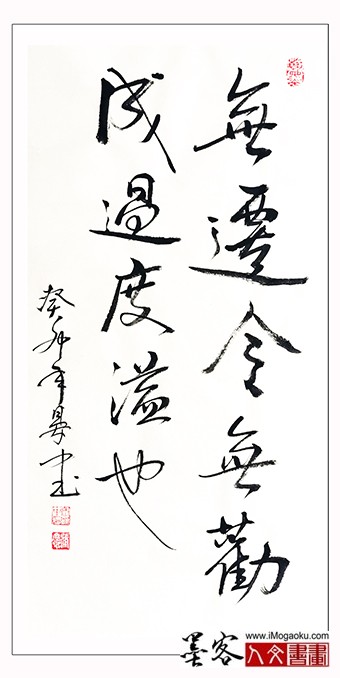 無遷令無勸
成過度溢也
癸卯年
書
墨客
www.iMogaoku.com
人文書畫